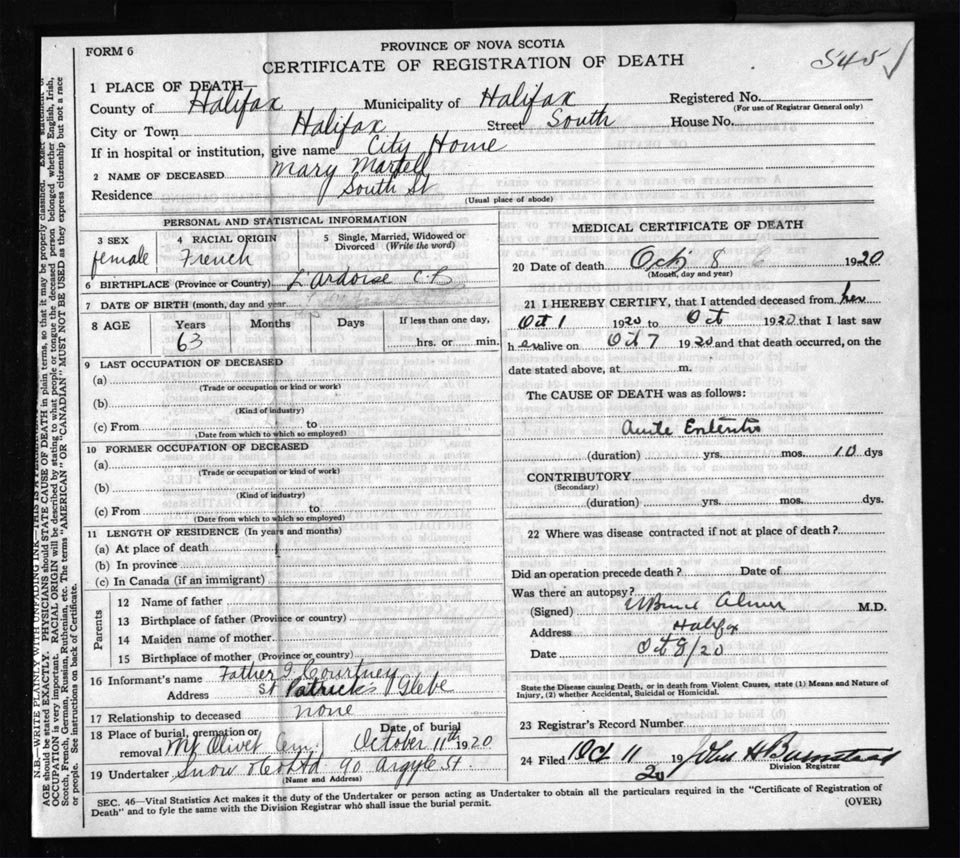 FORM 6
PROVINCE OF NOVA SCOTIA
545 ✓
CERTIFICATE OF REGISTRATION OF DEATH
1 PLACE OF DEATH
County of Halifax Municipality of Halifax Registered No.
(For use of Registrar General only)
City or Town Halifax Street South House No.
If in hospital or institution, give name City Home
2 NAME OF DECEASED Mary Martell
Residence South St
(Usual place of abode)
PERSONAL AND STATISTICAL INFORMATION
3 SEX 4 RACIAL ORIGIN 5 Single, Married, Widowed or Divorced (Write the word)
female French
6 BIRTHPLACE (Province or Country) L'Ardoise C.B
7 DATE OF BIRTH (month, day and year)
8 AGE Years Months Days If less than one day,
63 hrs. or min.
9 LAST OCCUPATION OF DECEASED
(a)
(Trade or occupation or kind of work)
(b)
(Kind of industry)
(c) From to
(Date from which to which so employed)
10 FORMER OCCUPATION OF DECEASED
(a)
(Trade or occupation or kind of work)
(b)
(Kind of industry)
(c) From to
(Date from which to which so employed)
11 LENGTH OF RESIDENCE (In years and months)
(a) At place of death
(b) In province
(c) In Canada (if an immigrant)
Parents
12 Name of father
13 Birthplace of father (Province or country)
14 Maiden name of mother
15 Birthplace of mother (Province or country)
16 Informant's name Father Courtney
Address St Patrick's Glebe
17 Relationship to deceased none
18 Place of burial, cremation or removal Mt Olivet Cem. Date of burial October 11th 1920
19 Undertaker Snow & Co Ltd. 90 Argyle St.
(Name and Address)
MEDICAL CERTIFICATE OF DEATH
20 Date of death Oct 8 1920
(Month, day and year)
21 I HEREBY CERTIFY, that I attended deceased from her
Oct 1 1920 to Oct 1920 that I last saw
her alive on Oct 7 1920 and that death occurred, on the
date stated above, at m.
The CAUSE OF DEATH was as follows:
Acute Enteritis
(duration) yrs. mos. 10 dys
CONTRIBUTORY
(Secondary)
(duration) yrs. mos. dys.
22 Where was disease contracted if not at place of death?
Did an operation precede death? Date of
Was there an autopsy?
(Signed) Bruce Almon M.D.
Address Halifax
Date Oct 9/20
State the Disease causing Death, or in death from Violent Causes, state (1) Means and Nature of
Injury, (2) whether Accidental, Suicidal or Homicidal.
23 Registrar's Record Number
24 Filed Oct 11 1920 John H Barnstead
Division Registrar
SEC. 46—Vital Statistics Act makes it the duty of the Undertaker or person acting as Undertaker to obtain all the particulars required in the "Certificate of Registration of
Death" and to fyle the same with the Division Registrar who shall issue the burial permit.
(OVER)
N.B.—WRITE PLAINLY WITH UNFADING INK—THIS IS
AGE should be stated EXACTLY. PHYSICIANS should STATE CAUSE OF DEATH in plain terms, so that it may be properly classified. Exact statement of
OCCUPATION is very important. RACIAL ORIGIN will be described by stating to what people or tongue the deceased person belonged whether English, Irish,
Scotch, French, German, Russian, Ruthenian, etc. The terms "AMERICAN" OR "CANADIAN" MUST NOT BE USED as they express citizenship but not a race
or people. See instructions on back of Certificate.